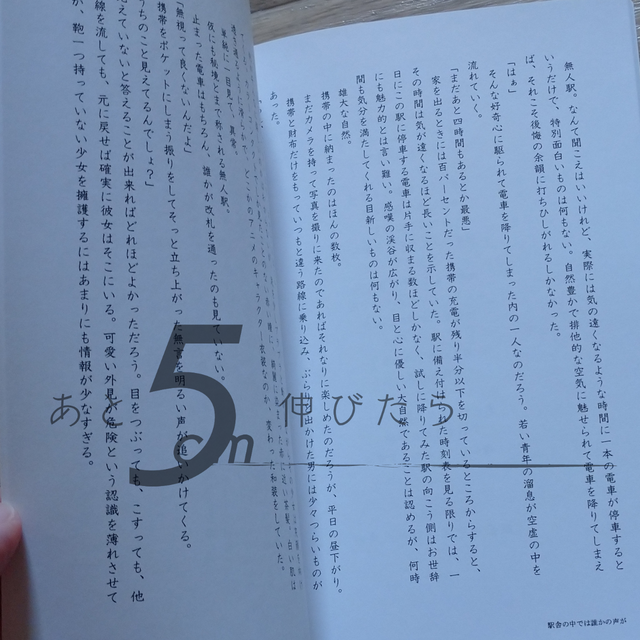 無人駅。なんて聞こえはいいけれど、実際には気の遠くなるような時間に一本の電車が停車すると
いうだけで、特別面白いものは何もない。自然豊かで排他的な空気に魅せられて電車を降りてしまえ
ば、それこそ後悔の余韻に打ちひしがれるしかなかった。
「はぁ」
そんな好奇心に駆られて電車を降りてしまった内の一人なのだろう。若い青年の溜息が空虚の中を
流れていく。
「まだあと四時間もあるとか最悪」
家を出るときには百パーセントだった携帯の充電が残り半分以下を切っているところからすると、
その時間は気が遠くなるほど長いことを示していた。駅に備え付けられた時刻表を見る限りでは、一
日にこの駅に停車する電車は片手に収まる数ほどしかなく、試しに降りてみた駅の向こう側はお世辞
にも魅力的とは言い難い。感嘆の渓谷が広がり、目と心に優しい大自然であることは認めるが、何時
間も気分を満たしてくれる目新しいものは何もない。
雄大な自然。
携帯の中に納まったのはほんの数枚。
まだカメラを持って写真を撮りに来たのであればそれなりに楽しめたのだろうが、平日の昼下がり。
携帯と財布だけをもっていつもと違う路線に乗り込み、ぶらり出かけた男には少々つらいものが
あった。
駅舎の中では誰かの声が
単純に一目見て、異常。
仮にも秘境とまで称される無人駅。
止まった電車はもちろん、誰かが改札を通ったのも見ていない。
「無視って良くないんだよ」
携帯をポケットにしまう振りをしてそっと立ち上がった無言を明るい声が追いかけてくる。
うちのこと見えてるんでしょ？」
えていないと答えることが出来ればどれほどよかっただろう。目をつぶっても、こすっても、他
線を流しても、元に戻せば確実に彼女はそこにいる。可愛い外見が危険という認識を薄れさせて
が、鞄一つ持っていない少女を擁護するにはあまりにも情報が少なすぎる。
あと5cm伸びたら